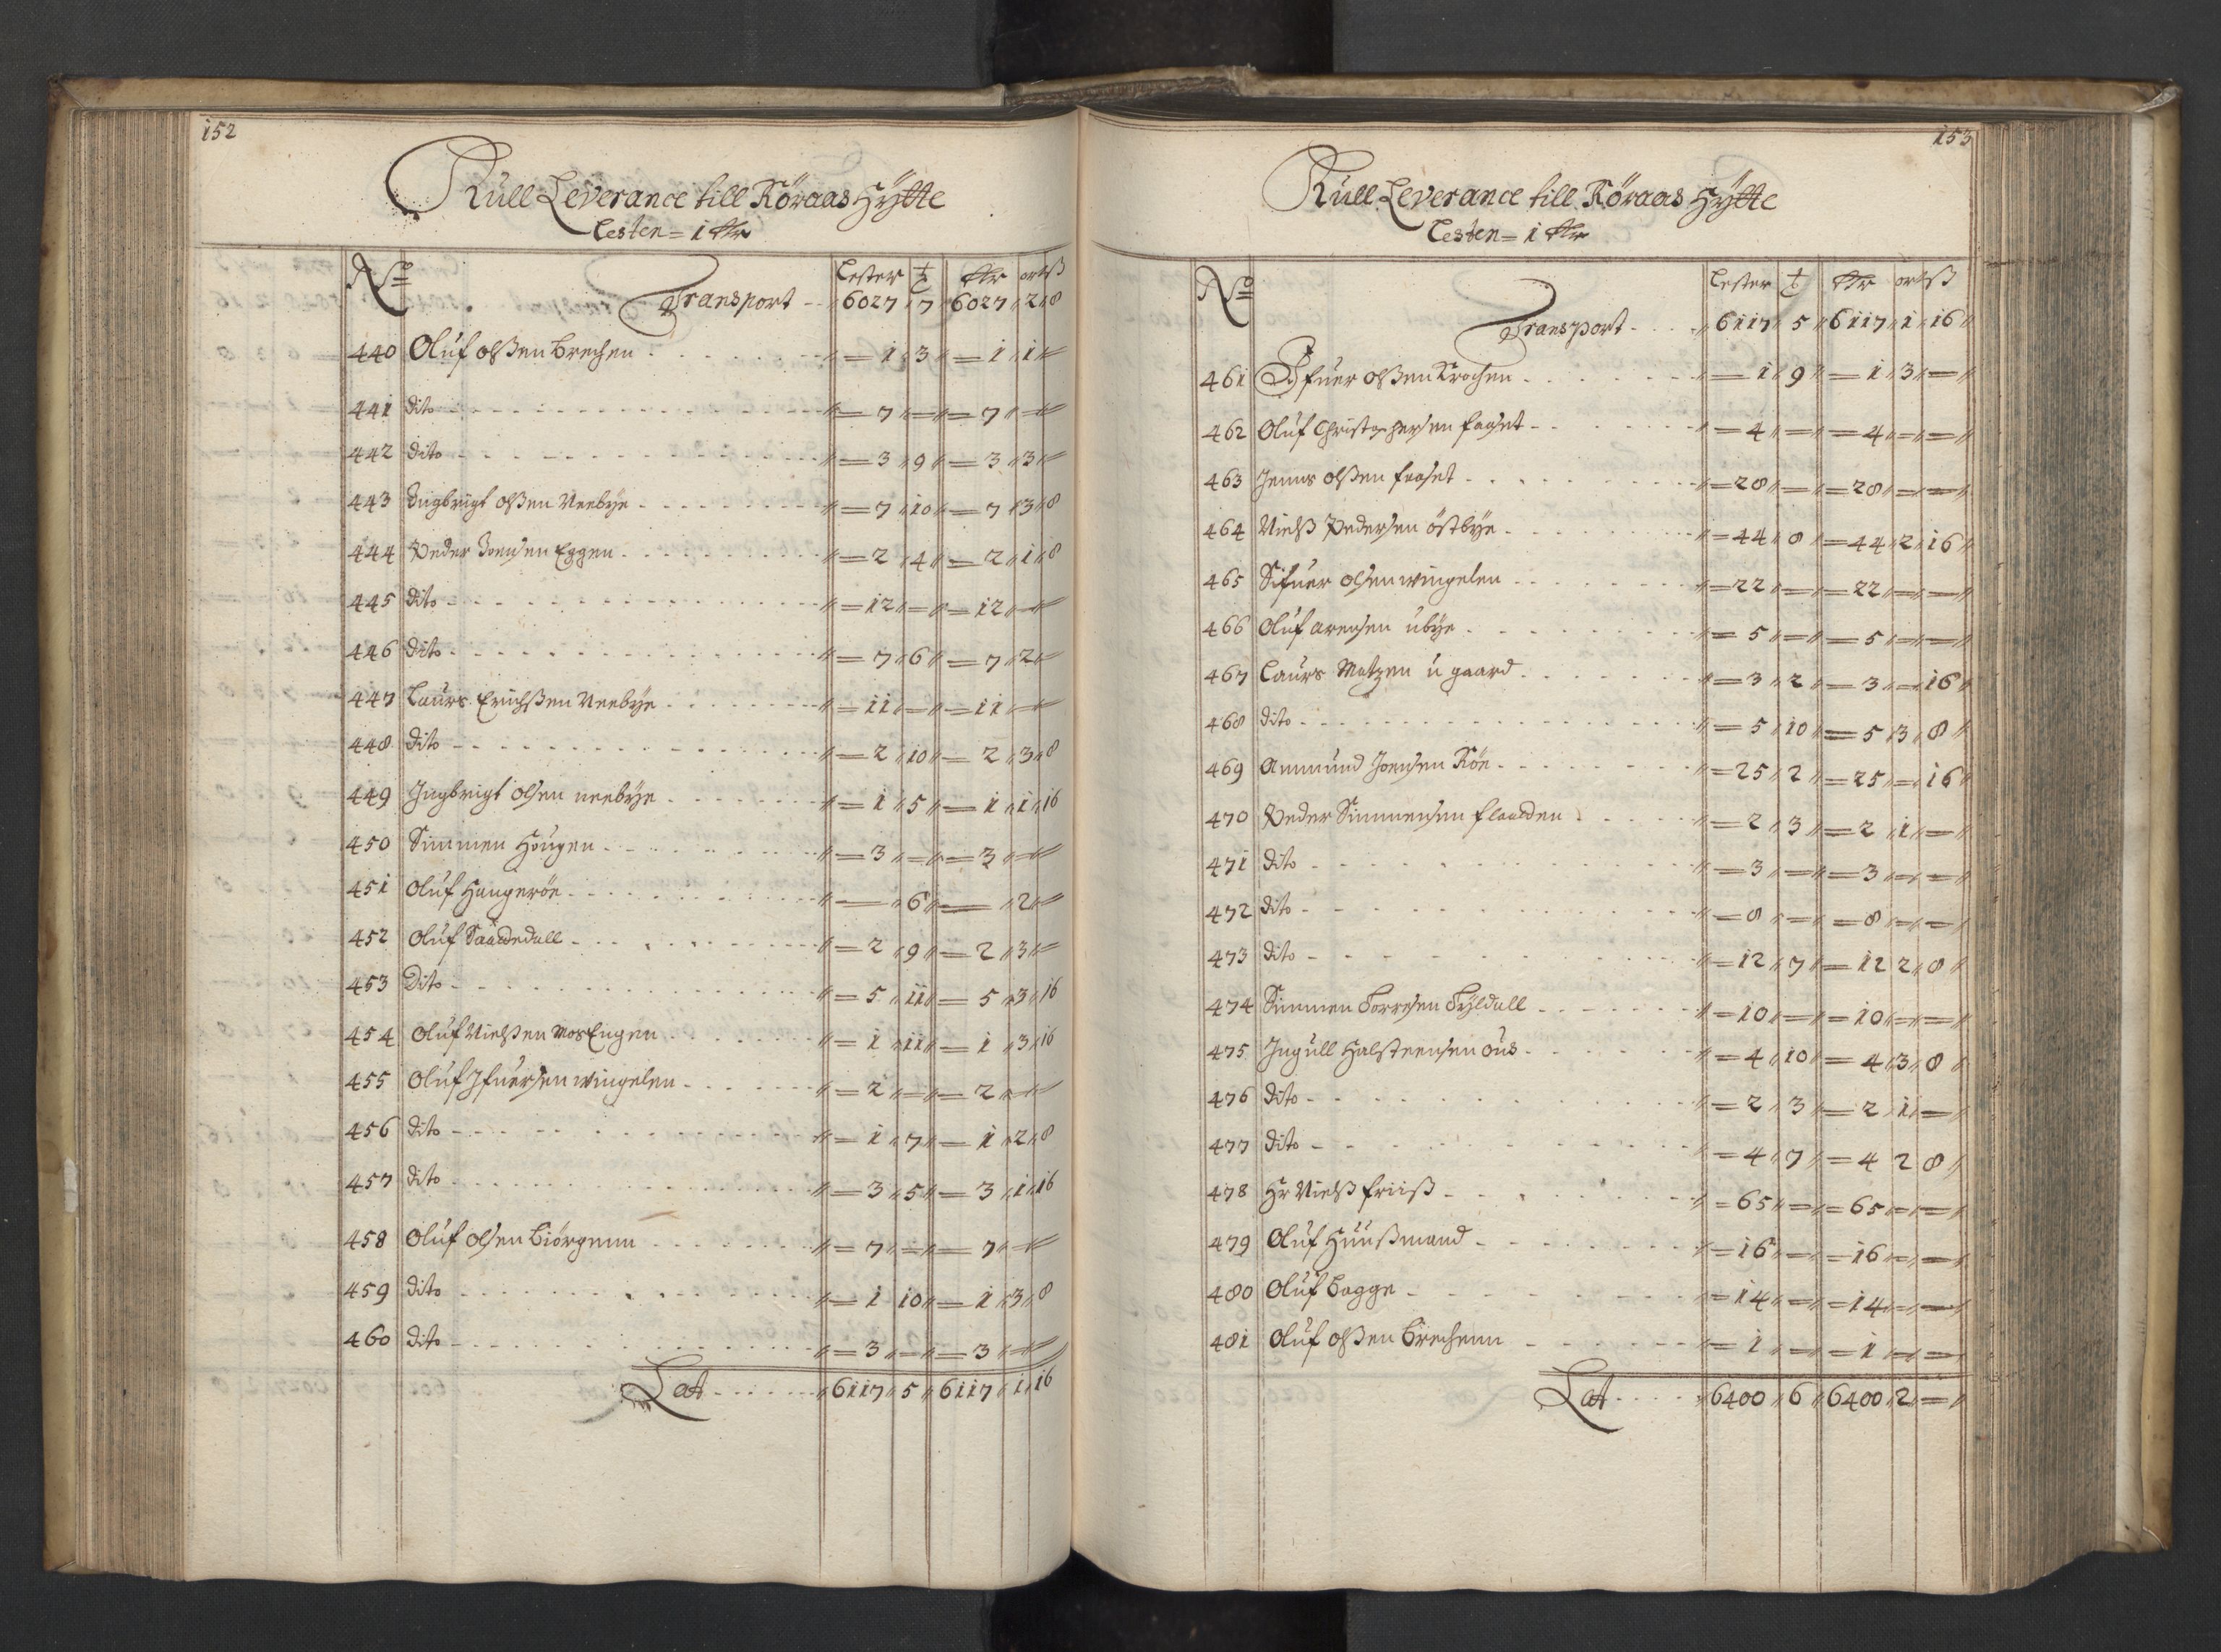 152
Kull Leverance till Röraas Hytte
Lesten = 1 Rdr
No Lester t Rdr ort ß
Transport - 6027 7 6027 2 8
440 Oluf olßen brechen 1 3 1 1 =
441 dito 7 = 7 =
442 dito 3 9 3 3 =
443 Ingbrigt olßen Neebye 7 10 7 3 8
444 Peder Joensen Eggen 2 4 2 1 8
445 dito 12 = 12 =
446 dito 7 6 7 2 =
447 Laurs Erichßen Neebye 11 = 11 =
448 dito 2 10 2 3 8
449 Ingbrigt olsen neebye 1 5 1 1 16
450 Simmen Hougen 3 = 3 =
451 Oluf Haugeröe = 6 = 2 =
452 Oluf Saaddedall 2 9 2 3 =
453 Dito 5 11 5 3 16
454 Oluf Nielßen MosEngen 1 11 1 3 16
455 Oluf Ifuersen wingelen 2 = 2 =
456 dito 1 7 1 2 8
457 dito 3 5 3 1 16
458 Oluf olsen Biörgenn 7 = 7 =
459 dito 1 10 1 3 8
460 dito 3 = 3 =
Lat 6117 5 6117 1 16
153
Kull Leverance till Röraas Hytte
Lesten = 1 Rdr
No Lester t Rdr ort ß
Transport - 6117 5 6117 1 16
461 Ifuer olßen Krochen 1 9 1 3 =
462 Oluf Christophersen faset 4 = 4 = =
463 Jenns olßen faaset 28 = 28 = =
464 Nielß Pedersen östbye 44 8 44 2 16
465 Sifuer olsen wingelen 22 = 22 = =
466 Oluf arensen übye 5 = 5 = =
467 Laurs Matzen ü gaard 3 2 3 = 16
468 dito 5 10 5 3 8
469 Ammund Joensen Röe 25 2 25 = 16
470 Peder Simmensen flaadden 2 3 2 1 =
471 dito 3 = 3 = =
472 dito 8 = 8 = =
473 dito 12 7 12 2 8
474 Simmen Torresen Tyldall 10 = 10 = =
475 Ingull Halsteensen ous 4 10 4 3 8
476 dito 2 3 2 1 =
477 dito 4 7 4 2 8
478 Hr Nielß friiß 65 = 65 = =
479 Oluf Huußmand 16 = 16 = =
480 Oluf Bagge 14 = 14 = =
481 Oluf olßen brechenn 1 = 1 = =
Lat 6400 6 6400 2 =